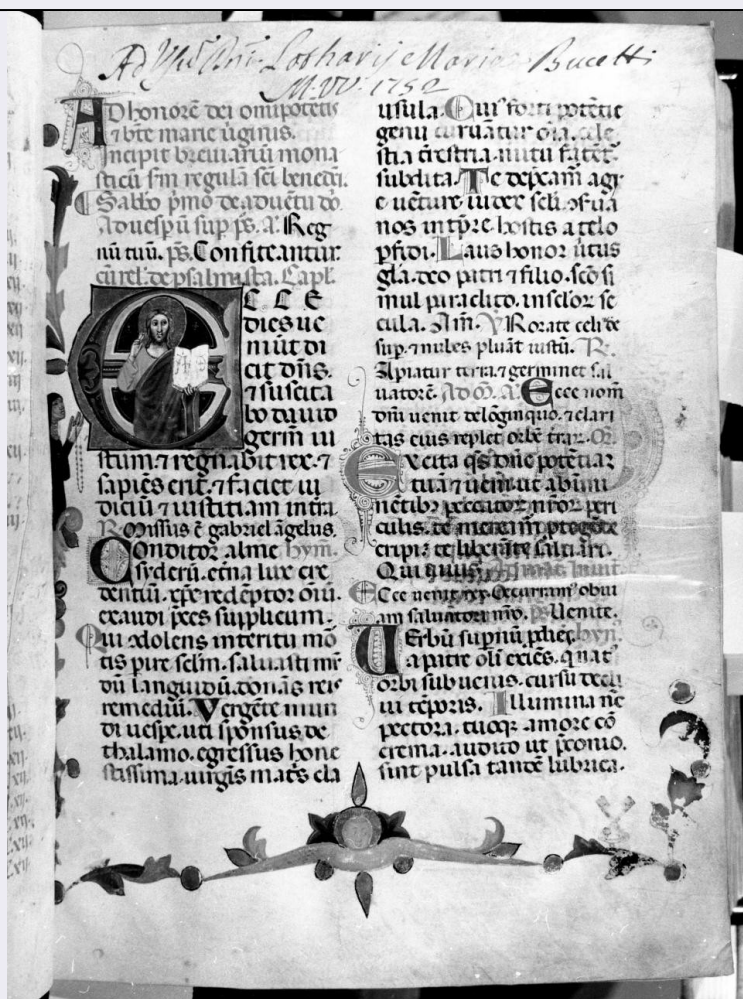 Ad Lotharij Maria Bucetti
1752
AD honorē dei omīpotētis
⁊ bt̄e marie ūginis.
Incipit breuiariū mona
sticū sm̄ regulā sc̄i benedcī.
Sabbo pͥmo de aduētu dō.
Ad uesꝑū suꝑ ps̄. a. Reg
nū tuū. ps̄. Confiteantur
cū rel. de psalmista. Capl̄.
ECCE
dies ue
niūt di
cit dn̄s.
⁊ suscita
bo dauid
germ̄ iu
stum. ⁊ regnabit rex. ⁊
sapiēs erit. ⁊ faciet iu
diciū ⁊ iustitiam in t̄ra.
R. Missus ē gabriel āgelus.
Conditor alme hym̄.
syderū. et̄na lux cre
dentiū. xp̄e redēptor oīū.
exaudi p̄ces supplicum.
Qui ↄdolens interitu mō
tis ꝑire sc̄lm. saluasti mū
dū languidū. donās reis
remediū. Vergēte mun
di uesꝑe. uti spōnsus de
thalamo. egressus hone
stissima. uirgīs mat̄s cla
usula. Cuiꝰ forti potētie
genu curuātur oīa. cele
stia t̄restria. nutu fatēt᷑
subdita. Te dep̄cam̄ agi
e uēture iudex sc̄li. ↄs̄ua
nos in tp̄re. hostis a telo
ꝑfidi. Laus honor ūtus
gl̄a. deo patri ⁊ filio. sc̄o si
mul paraclito. in sc̄lor̄ se
cula. Am̄. V̄ Rorate celi de
suꝑ. ⁊ nubes pluāt iustū. R.
Apiatur terra. ⁊ germinet sal
uatorē. Ad M̄. A. Ecce nom̄
dn̄i uenit de lōginquo. ⁊ clari
tas eius replet orbē t̄rar̄. Or̄.
Excita q̄s dn̄e potētiaꝫ
tuā ⁊ ueni. ut ab īmi
nētibꝰ pecc̄or̄ nr̄or̄ peri
culis. te meream̄ ꝓtegēte
eripi. te liberāte saluari.
Qui uiuis. Ad inuit.
Ecce uenit rex. Occuram̄ obui
am saluatori nr̄o. ps̄. Uenite.
Uerbū suꝑnū ꝓdiēs. hyn̄.
a patre olī exiēs. qui nat᷒
orbi subuenis. cursu decli
ui tēporis. Illumina nc̄
pectora. tuoqꝫ amore cō
crema. audito ut p̄conio.
sint pulsa tandē lubrica.